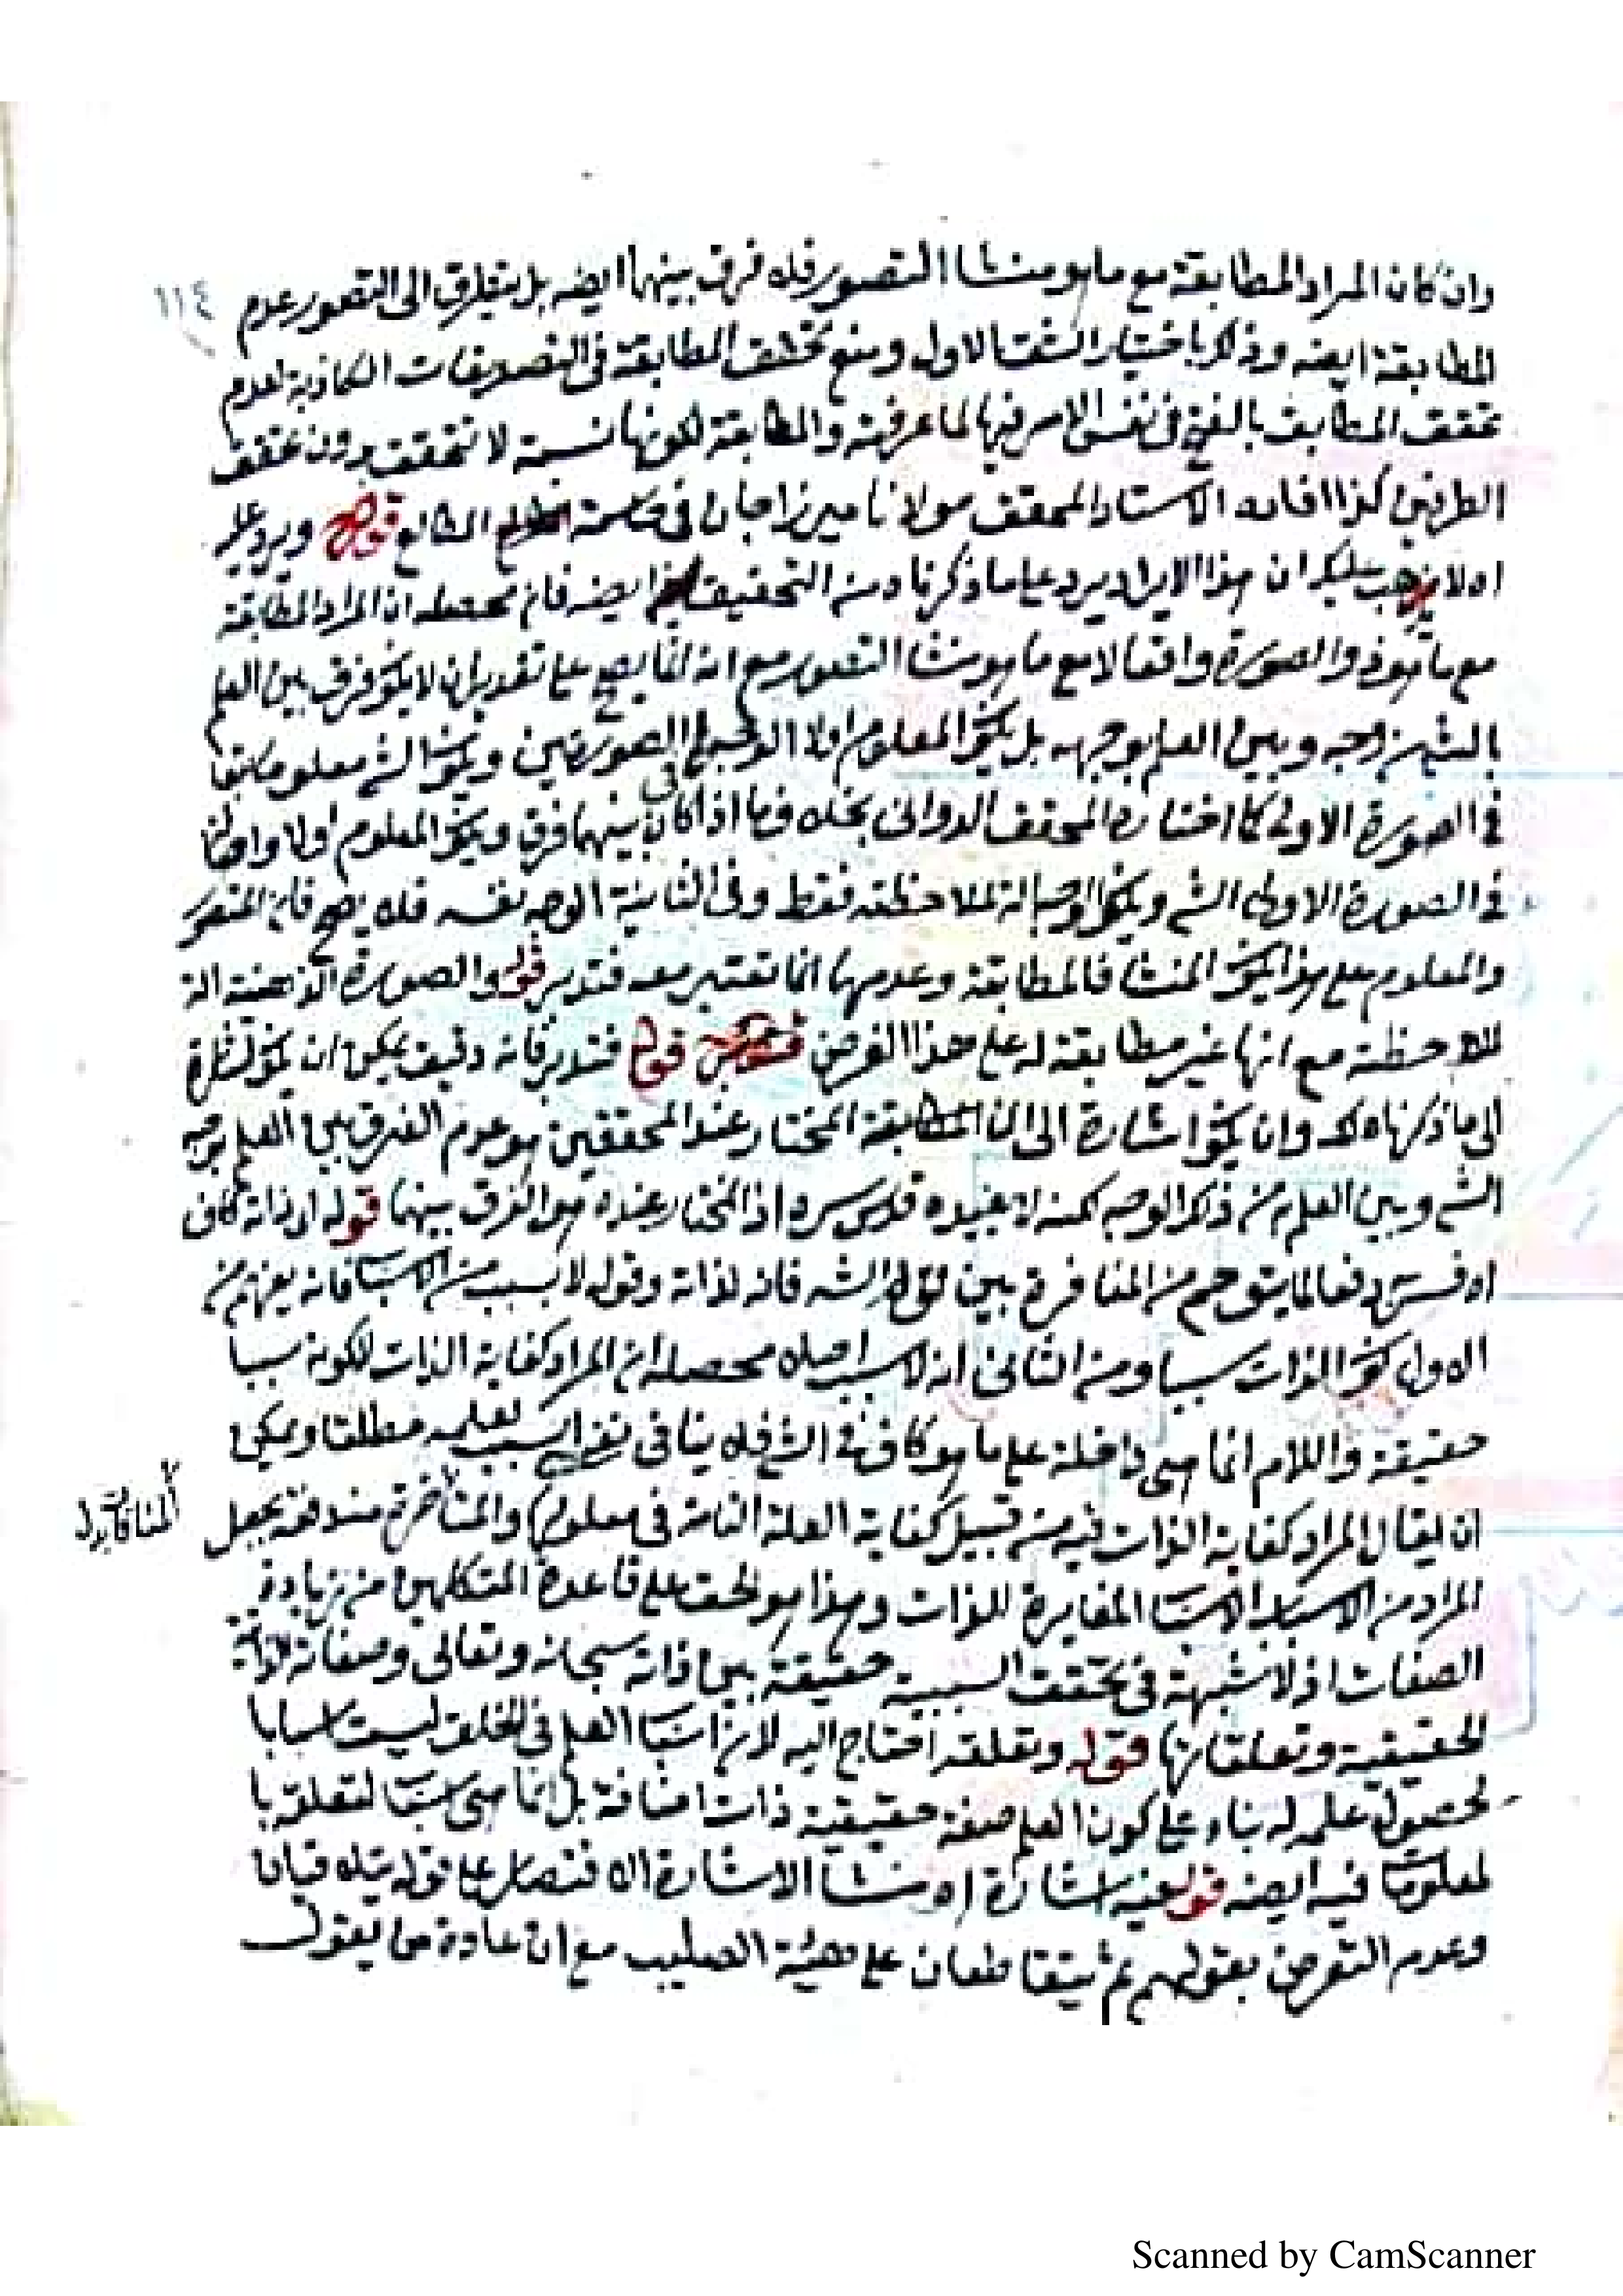 وان كان المراد المطابقة مع ما هو منشا التصور فلا فرق بينهما ايضه بل يتطرق الى التصور عدم
١١٤
المطابقة ايضه وذلك باختيار الشق الاول ومنع تخلف المطابقة فى التصديقات الكاذبة لعدم
تحقق المطابق بالفتح فى نفس الامر فيها لما عرفته والمطابقة لكونها نسبة لا تتحقق بدون تحقق
الطرفين كذا افاده الاستاد المحقق مولانا ميرزاجان فى حاشية المطالع قوله ويرد عليه
اولا عليك ان هذا الايراد يرد على ما ذكرناه من التحقيق ايضه فان محتمله ان المراد المطابقة
مع ما هو ذو الصورة واقعا لا مع ما هو منشا التصور مع انه انما يصح على تقدير ان لا يكون فرق بين العلم
بالشئ من وجه وبين العلم بوجهه بل يكون المعلوم اولا الوجه فى الصورتين ويكون الشئ معلوما ثانيا
فى الصورة الاولى كما اختاره المحقق الدوانى بخلاف ما اذا كان بينهما فرق ويكون المعلوم اولا وثانيا
فى الصورة الاولى الشئ ويكون الوجه الة لملاحظته فقط وفى الثانية الوجه نفسه فلا يصح فان المتصور
والمعلوم على هذا يكون المنشا فالمطابقة وعدمها انما تعتبر معه فتدبر قوله والصورة الذهنية الة
لملاحظته مع انها غير مطابقة له على هذا الفرض قوله فتدبر فانه دقيق يمكن ان يكون اشارة
الى ما ذكرناه وان يكون اشارة الى ان المختار عند المحققين هو عدم الفرق بين العلم بوجه
الشئ وبين العلم من ذلك الوجه لكنه لا يفيده قدس سره اذ المختار عنده هو الفرق بينهما قوله اى ذاته كاف
اه فسره دفعا لما يتوهم من المنافرة بين قوله الشئ فانه لذاته وقوله لا بسبب من الاسباب فانه يفهم من
الاول كون الذات سببا ومن الثانى انه لا سبب اصلا محصله ان المراد كفاية الذات لا كونه سببا
حقيقة واللام انما هى داخلة على ما هو كاف فى الشئ فلا ينافى نفى السبب لعلمه مطلقا ويمكن
ان يقال المراد كفاية الذات فيه من قبيل كفاية العلة التامة فى معلولها والمنافرة مندفعة بجعل
المراد من الاسباب الاسباب المغايرة للذات وهذا هو الحق على قاعدة المتكلمين من زيادة
الصفات اذ لا شبهة فى تحقق السببية حقيقة بين ذاته سبحانه وتعالى وصفاته الذاتية
الحقيقية وتعلقاتها قوله وتعلقه احتاج اليه لان اسباب العلم فى الخلق ليست اسبابا
لحصول علمه له بناء على كون العلم صفة حقيقية ذات اضافة بل انما هى اسباب لتعلقه با
لمعلومات فيه ايضه قوله فيه اشارة اه منشا الاشارة الاقتصار على قوله يتلاقيان
وعدم التعرض بقولهم ثم يتقاطعان على هيئة الصليب مع ان عادة من يقول